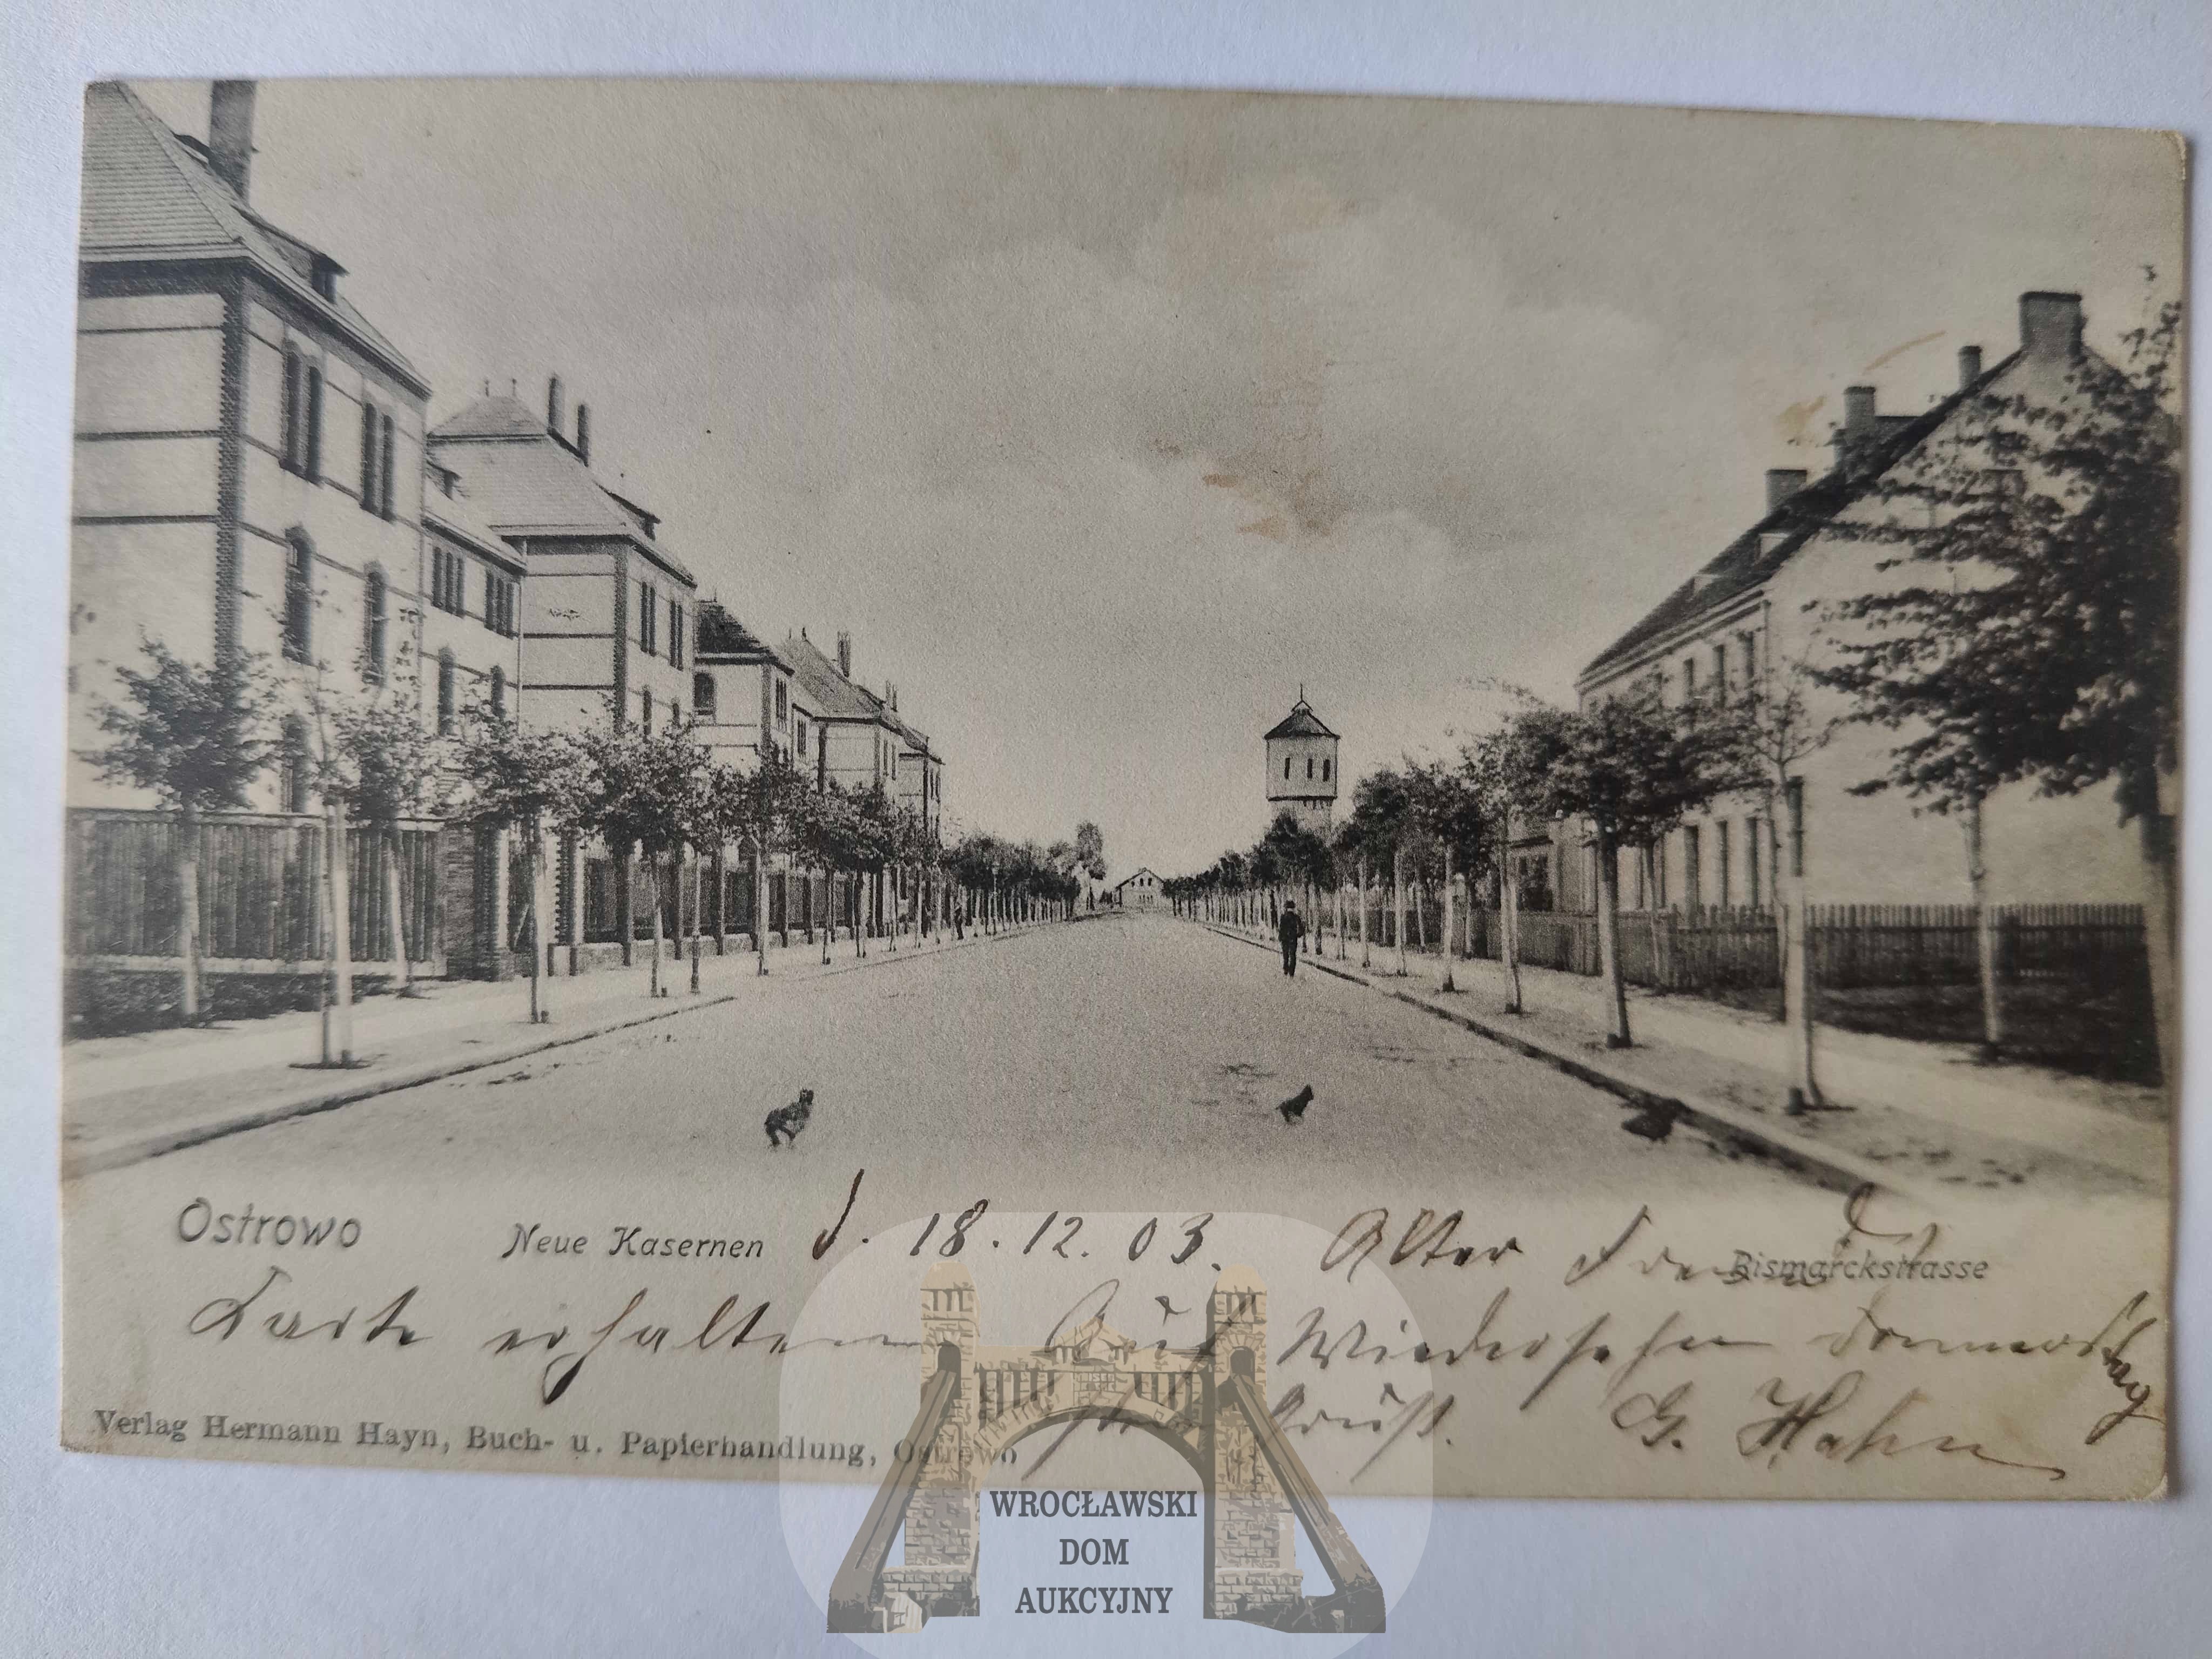 Ostrowo Neue Kasernen d. 18.12.03. Alter Freund Bismarckstrasse
Karte erhalten Auf Wiedersehen Donnerstag
Gruß. G. Hahn
Verlag Hermann Hayn, Buch- u. Papierhandlung, Ostrowo
WROCŁAWSKI
DOM
AUKCYJNY